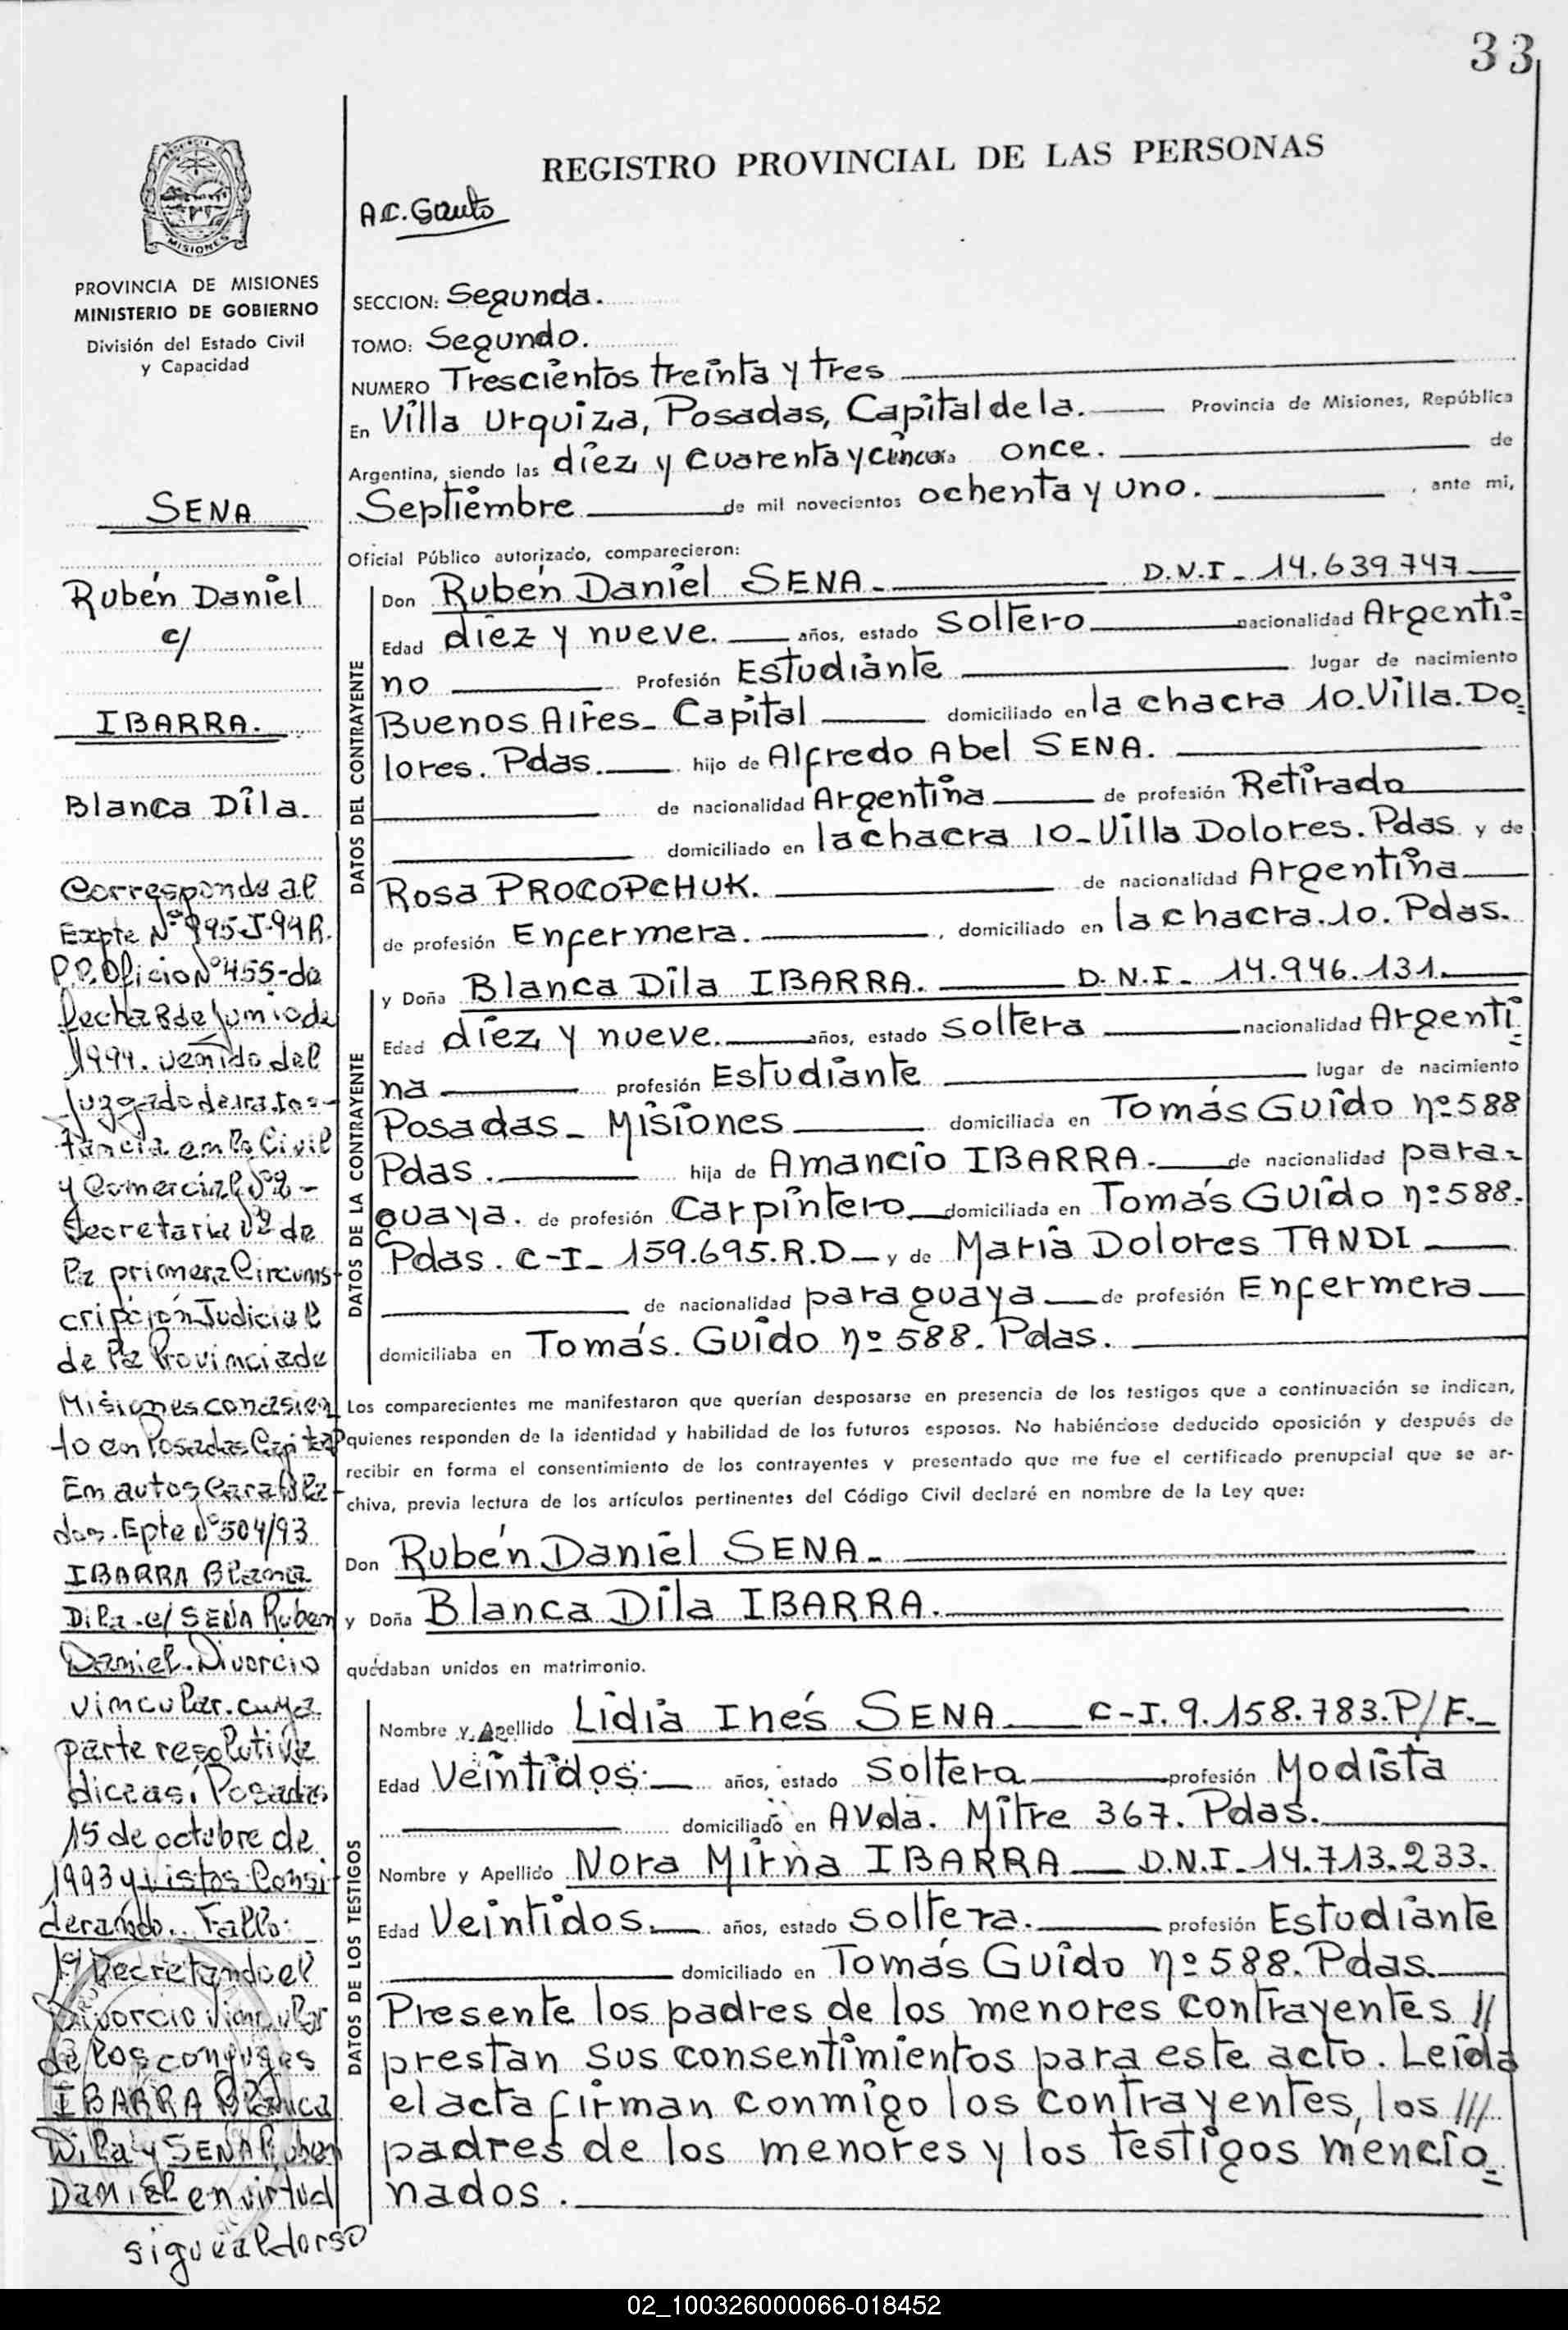 33
REGISTRO PROVINCIAL DE LAS PERSONAS
MISIONES
PROVINCIA DE MISIONES
MINISTERIO DE GOBIERNO
División del Estado Civil
y Capacidad
SENA
Rubén Daniel
c/
IBARRA.
Blanca Dila.
Corresponde al
Expte Nº 995-J-94 R.
P.P. Oficio Nº 455-de
fecha 8 de Junio de
1994. venido del
Juzgado de 1ra. Ins-
tancia en lo Civil
y Comercial Nº 2-
Secretaria Nº 2 de
la primera Circuns-
cripción Judicial
de la Provincia de
Misiones con asien
to en Posadas Capital
En autos Caratula-
dos. Epte Nº 504/93
IBARRA Blanca
Dila. c/ SENA Ruben
Daniel. Divorcio
vincular. cuya
parte resolutiva
dice asi, Posadas
15 de octubre de
1993 y vistos Consi-
derando.. Fallo:
1º Decretando el
Divorcio Vincular
de los conyuges
IBARRA Blanca
Dila y SENA Ruben
Daniel en virtud
sigue al dorso
A.C. Gauto
SECCION: Segunda.
TOMO: Segundo.
NUMERO Trescientos treinta y tres
En Villa Urquiza, Posadas, Capital de la. Provincia de Misiones, República
Argentina, siendo las diez y cuarenta y cinco once. de
Septiembre de mil novecientos ochenta y uno. , ante mi,
Oficial Público autorizado, comparecieron:
DATOS DEL CONTRAYENTE
Don Rubén Daniel SENA. D.N.I - 14.639.747
Edad diez y nueve. años, estado Soltero nacionalidad Argenti=
no Profesión Estudiante lugar de nacimiento
Buenos Aires- Capital domiciliado en la chacra 10. Villa. Do=
lores. Pdas. hijo de Alfredo Abel SENA.
de nacionalidad Argentina de profesión Retirado
domiciliado en la chacra 10- Villa Dolores. Pdas. y de
Rosa PROCOPCHUK. de nacionalidad Argentina
de profesión Enfermera. , domiciliado en la chacra. 10. Pdas.
DATOS DE LA CONTRAYENTE
y Doña Blanca Dila IBARRA. D.N.I- 14.946.131.
Edad diez y nueve. años, estado Soltera nacionalidad Argenti=
na profesión Estudiante lugar de nacimiento
Posadas- Misiones domiciliada en Tomás Guido nº 588
Pdas. hija de Amancio IBARRA. de nacionalidad para=
guaya. de profesión Carpintero domiciliada en Tomás Guido nº 588.
Pdas. C-I- 159.695.R.D- y de Maria Dolores TANDI
de nacionalidad paraguaya de profesión Enfermera
domiciliaba en Tomás. Guido nº 588. Pdas.
Los comparecientes me manifestaron que querían desposarse en presencia de los testigos que a continuación se indican,
quienes responden de la identidad y habilidad de los futuros esposos. No habiéndose deducido oposición y después de
recibir en forma el consentimiento de los contrayentes y presentado que me fue el certificado prenupcial que se ar-
chiva, previa lectura de los artículos pertinentes del Código Civil declaré en nombre de la Ley que:
Don Rubén Daniel SENA.
y Doña Blanca Dila IBARRA.
quedaban unidos en matrimonio.
DATOS DE LOS TESTIGOS
Nombre y Apellido Lidia Inés SENA C-I. 9.158.783.P/F.
Edad Veintidos. años, estado Soltera profesión Modista
domiciliado en Avda. Mitre 367. Pdas.
Nombre y Apellido Nora Mirna IBARRA D.N.I- 14.713.233.
Edad Veintidos. años, estado soltera. profesión Estudiante
domiciliado en Tomás Guido nº 588. Pdas.
Presente los padres de los menores contrayentes //
prestan sus consentimientos para este acto. Leida
el acta firman conmigo los contrayentes, los ///
padres de los menores y los testigos mencio=
nados.
02_100326000066-018452